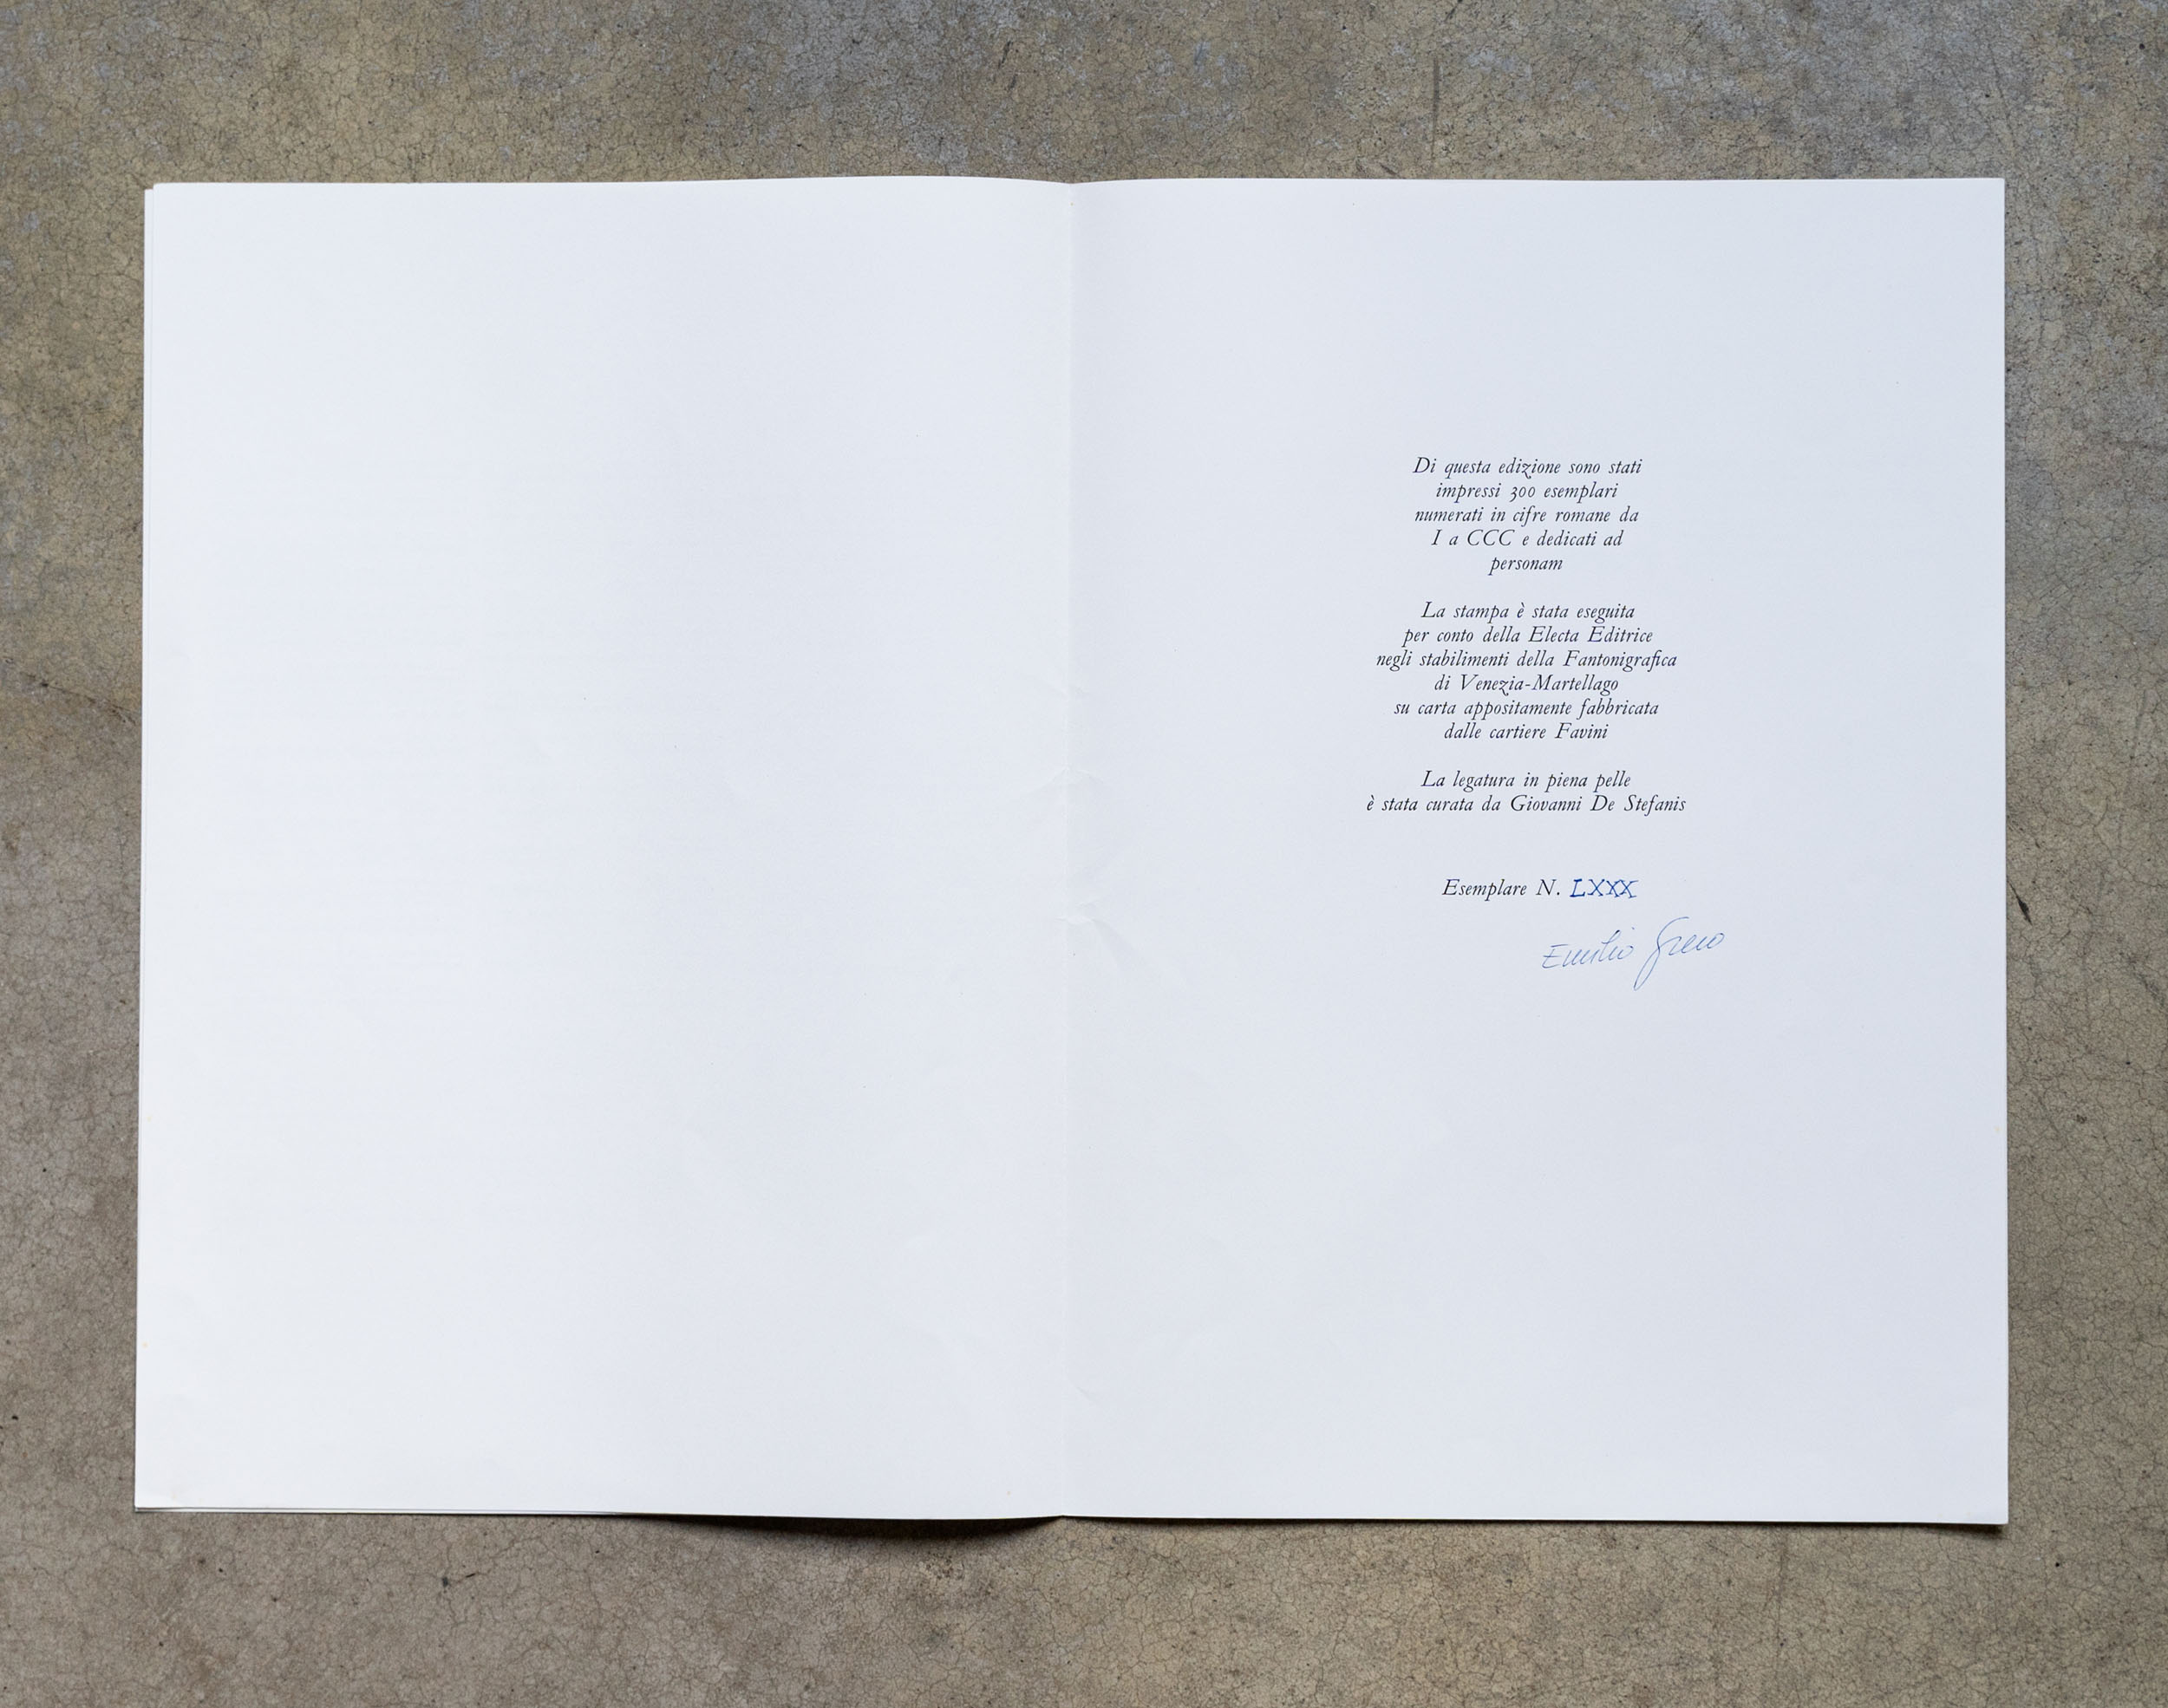 Di questa edizione sono stati
impressi 300 esemplari
numerati in cifre romane da
I a CCC e dedicati ad
personam
La stampa è stata eseguita
per conto della Electa Editrice
negli stabilimenti della Fantonigrafica
di Venezia-Martellago
su carta appositamente fabbricata
dalle cartiere Favini
La legatura in piena pelle
è stata curata da Giovanni De Stefanis
Esemplare N. LXXX
Emilio Greco